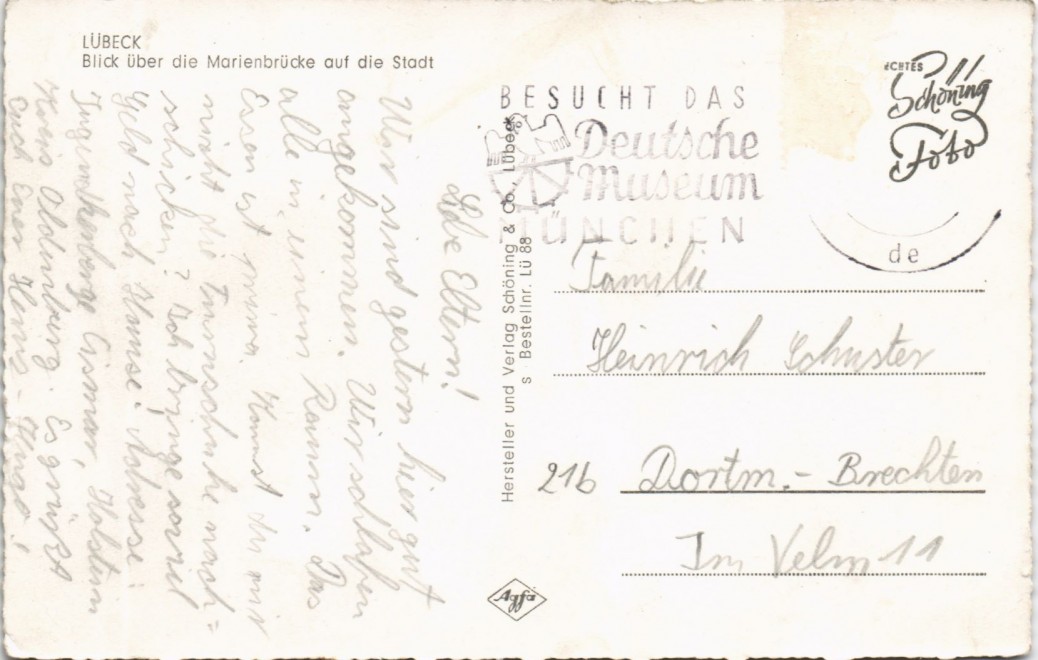 LÜBECK
Blick über die Marienbrücke auf die Stadt
Liebe Eltern!
Wir sind gestern hier gut
angekommen. Wir schlafen
alle in einem Raum. Das
Essen ist prima. Kannst du mir
nicht die Turnschuhe nach=
schicken? Ich bringe soviel
Geld nach Hause! Adresse:
Jugendherberge Cismar Holstein
Kreis Oldenburg. Es grüßt
Euch Euer Heinz-Hugo!
Hersteller und Verlag Schöning & Co., Lübeck
s Bestellnr. Lü 88
BESUCHT DAS
Deutsche
Museum
MÜNCHEN
ECHTES
Schöning
Foto
de
Familie
Heinrich Schuster
21b Dortm.- Brechten
Im Velm 11
Agfa